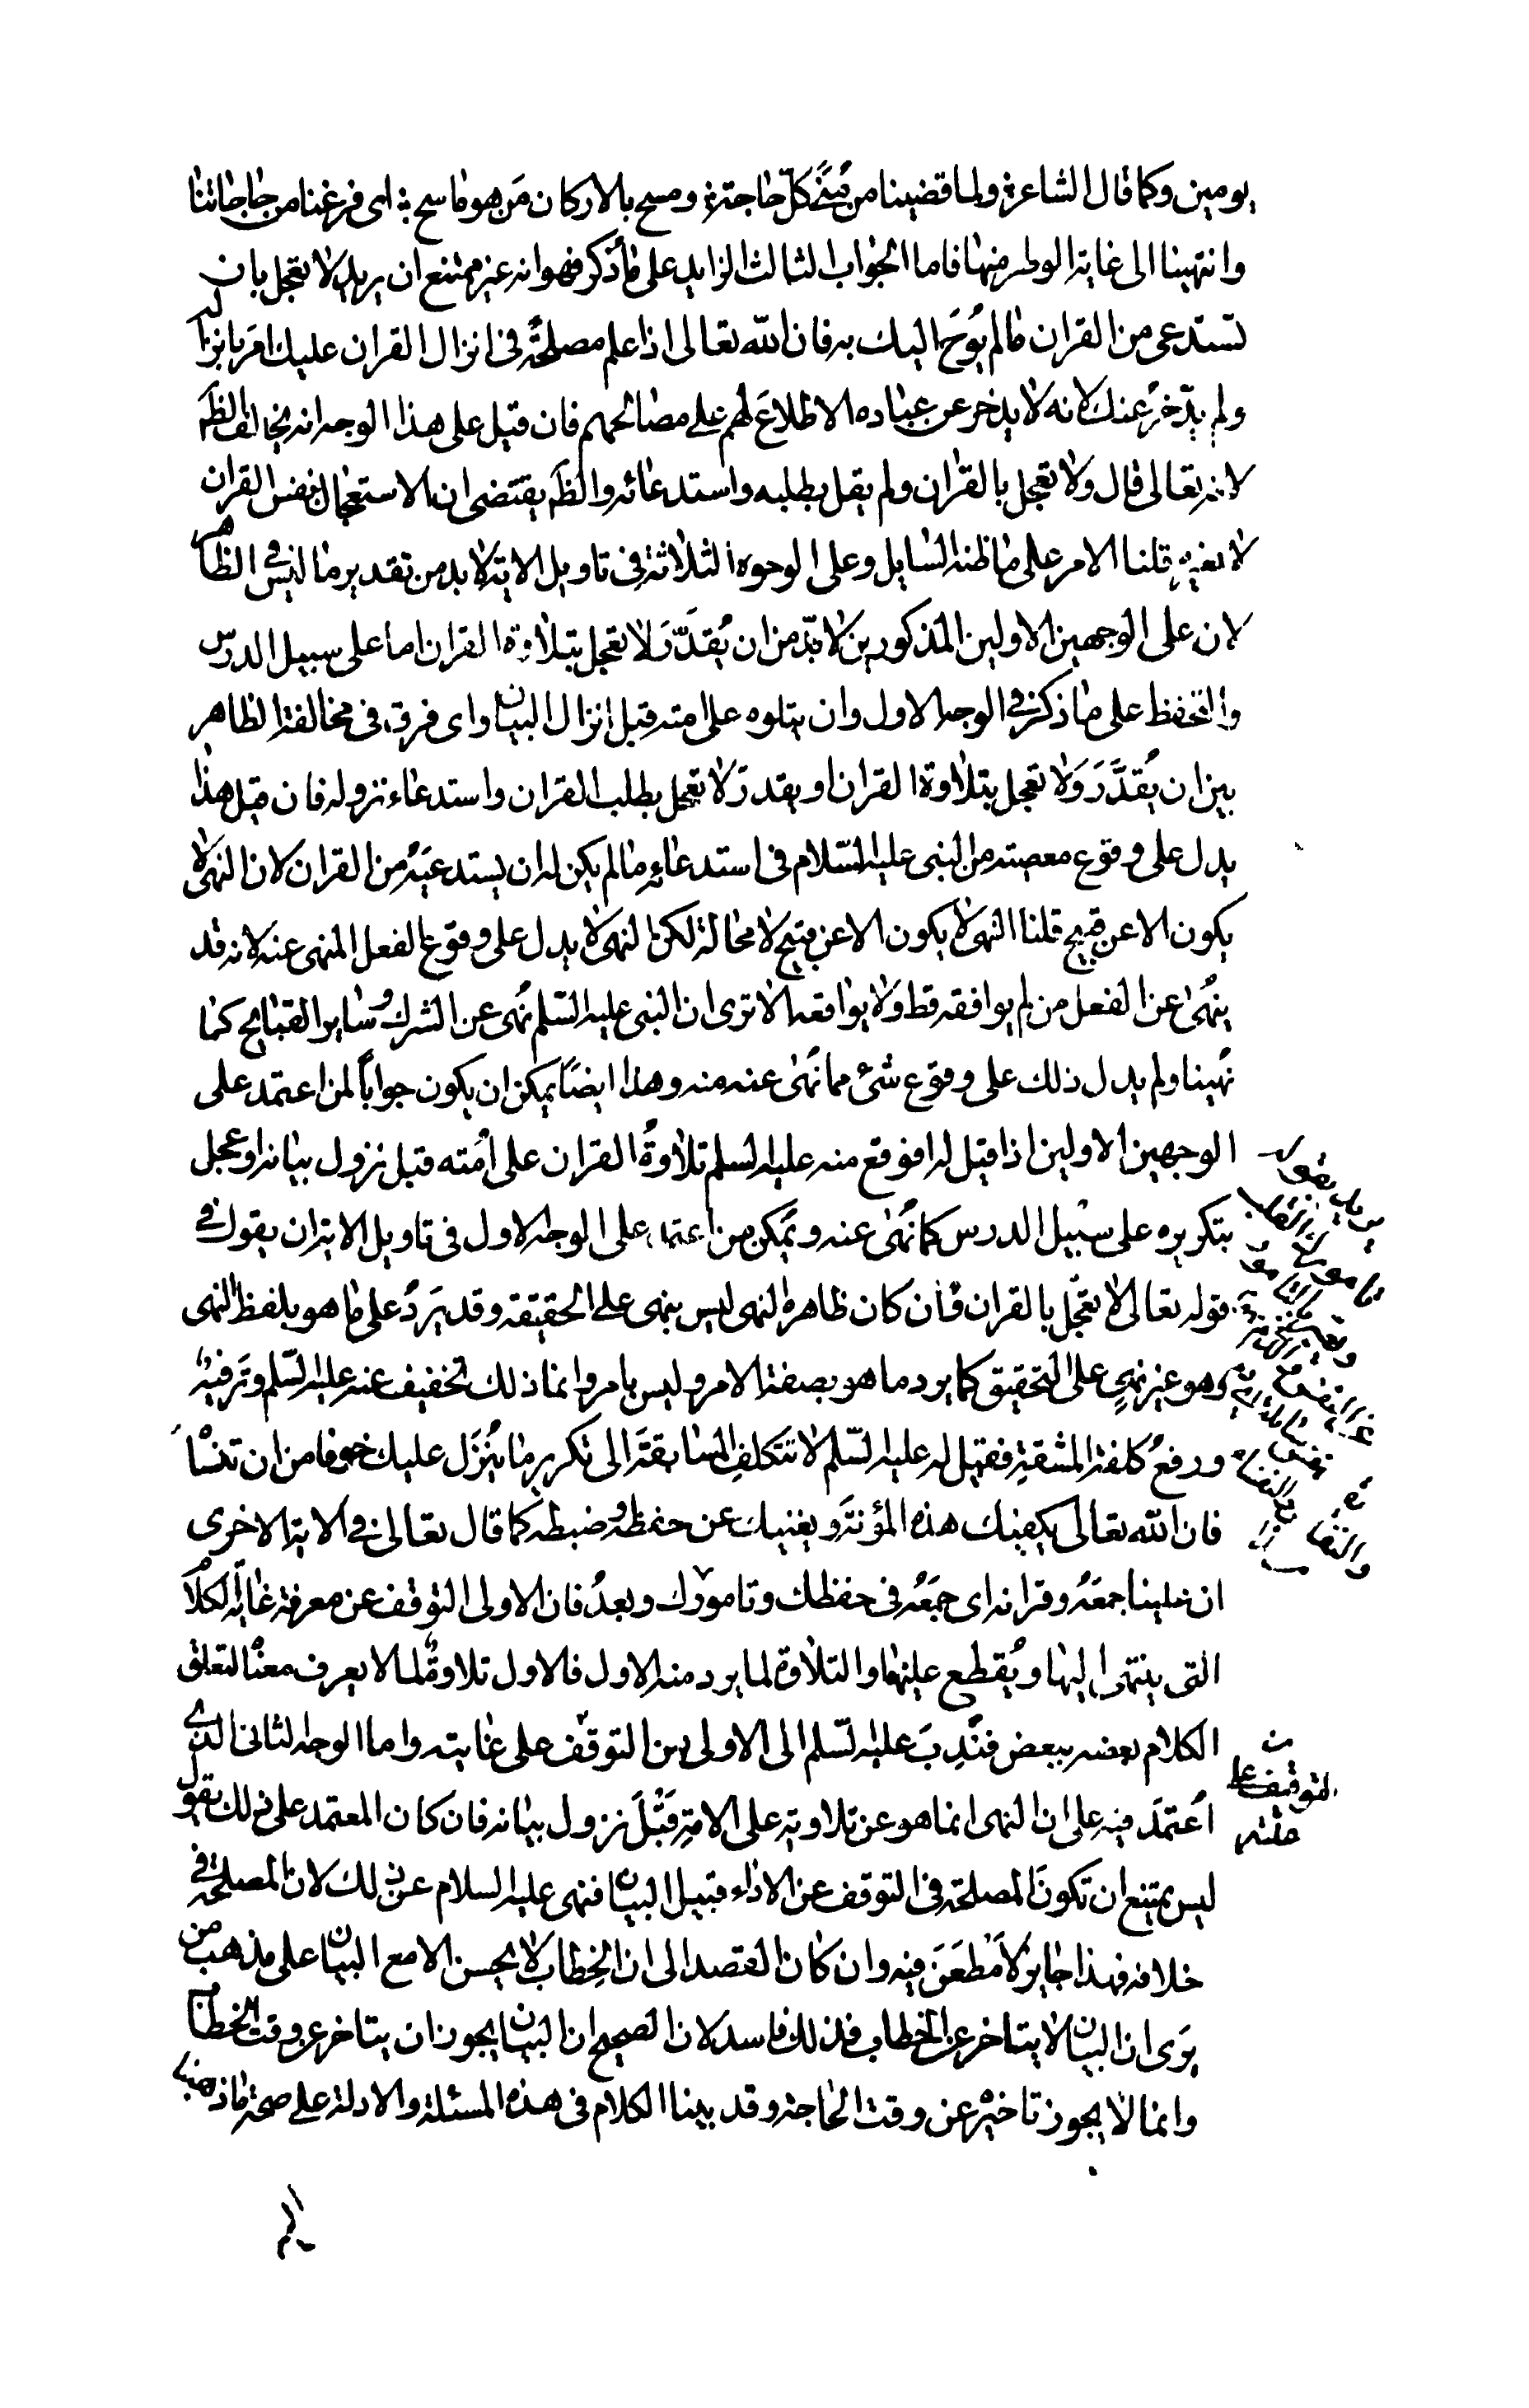 يومين وكما قال الشاعر ولما قضينا من مُنًى كلّ حاجة ومسح بالاركان مَن هو ماسح اى فرغنا من حاجاتنا
وانتهينا الى غاية الوطر منها فاما الجواب الثالث الزايد على ما ذكر فهو انه غير ممتنع ان يريد لا تعجل بان
تستدعى من القران ما لم يُوحَ اليك به فان الله تعالى اذا علم مصلحةً فى انزال القران عليك امَر بانزاله
ولم يدّخرْ عنك لانه لا يدخر عن عباده الاطلاعَ لهم على مصالحهم فان قيل على هذا الوجه انه يخالف الظَم
لانه تعالى قال ولا تعجل بالقران ولم يقل بطلبه واستدعائه والظم يقتضى ان الاستعجال بنفس القران
لا بغيره قلنا الامر على ما ظنه السايل وعلى الوجوه الثلاثة فى تاويل الاية لا بد من تقدير ما ليس فى الظاهر
لان على الوجهين الاولين المذكورين لا بدّ من ان يُقدَّرَ لا تعجل بتلاوة القران اما على سبيل الدرس
والتحفظ على ما ذكر فى الوجه الاول وان يتلوه على امته قبل انزال البيان واى فرق فى مخالفة الظاهر
بين ان يُقدَّرَ وَلا تعجل بتلاوة القران او يقدر لا تعجل بطلب القران واستدعاء نزوله فان قيل هذا
يدل على وقوع معصية من النبى عليه السّلام فى استدعاءِ ما لم يكن له ان يستدعيَهُ من القران لان النهى لا
يكون الا عن قبيح قلنا النهى لا يكون الا عن قبيح لا محالة لكن النهى لا يدل على وقوع الفعل المنهى عنه لانه قد
ينهُى عن الفعل من لم يوافقه قط ولا يواقعه الا ترى ان النبى عليه السّلم نُهى عن الشرك وساير القبايح كما
نُهينا ولم يدل ذلك على وقوع شئ مما نُهى عنه منه وهذا ايضًا يمكن ان يكون جوابًا لمن اعتمد على
الوجهين الاولين اذا قيل له افوقع منه عليه السلم تلاوةُ القران على اُمته قبل نزول بيانه او عجل
بتكريره على سبيل الدرس كما نُهى عنه ويُمكن من اعتمد على الوجه الاول فى تاويل الاية ان يقول فى
قوله تعالى لا تعجّل بالقران فان كان ظاهره النهى ليس بنهى على الحقيقة وقد يَرِدُ على ما هو بلفظ النهى
وهو غير نهىٍ على التحقيق كما يرد ما هو بصفة الامر وليس بامر وانما ذلك تخفيف عنه عليه السّلم وتَرفيهٌ
ورفعُ كلفة المشقةِ فقيل له عليه السّلم لا تتكلفِ المسابقةَ الى تكرير ما يُنزَل عليك خوفا من ان تنسْاه
فان الله تعالى يكفيك هذه المؤنة ويغنيك عن حفظه وضبطه كما قال تعالى فى الاية الاخرى
ان علينا جمعَهُ وقرانه اى جَمعُه فى حفظك وتامورك وبعدُ فان الاولى التوقف عن معرفة غاية الكلام
التى ينتهى اليها ويُقطع عليها والتلاوة لما يرد منه الاول فالاول تلاوةٌ لما لا يعرف معناه لتعلق
الكلام بعضه ببعض فنُدِبَ عليه السّلم الى الاولى من التوقّف على غايته واما الوجه الثانى الذى
اُعتمدَ فيه على ان النهى انما هو عن تلاوتهِ على الامةِ قَبْلَ نزول بيانه فان كان المعتمد على ذلك يقول
ليس يمتنع ان تكونَ المصلحة فى التوقف عن الاداء قبيل البيان فنهى عليه السلام عن ذلك لان المصلحة فى
خلافه فهذا جايز لا مَطعَنَ فيه وان كان القصد الى ان الخطاب لا يحسن الا مع البيان على مذهب من
يَرى ان البيان لا يتاخر عن الخطاب فذلك فاسد لان الصحيح ان البيان يجوز ان يتاخر عن وقت الخطاب
وانما لا يجوز تاخيرُه عن وقت الحاجة وقد بينا الكلام فى هذه المسئلة والادلة على صحة ما ذهبنا